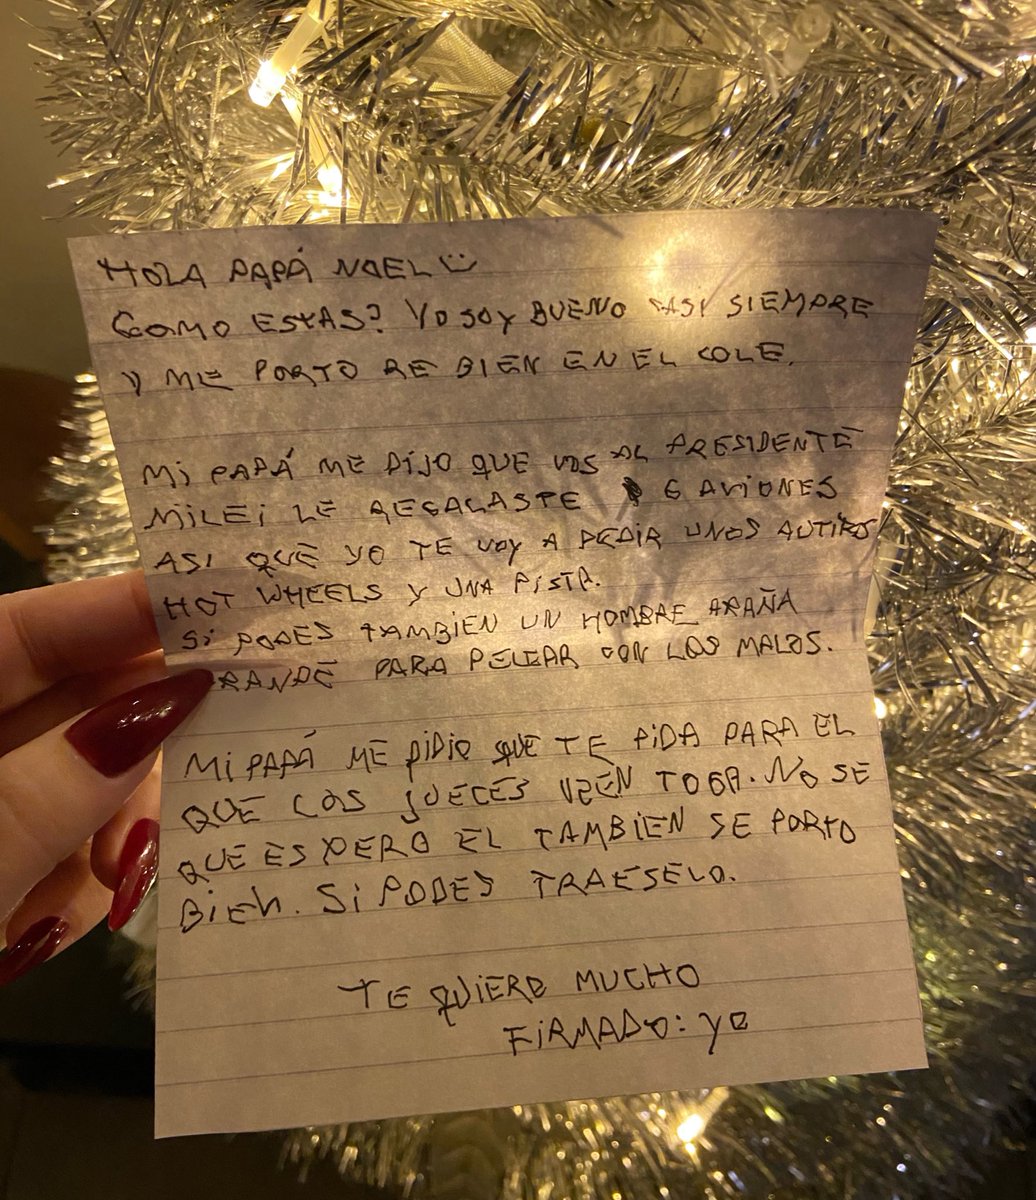 HOLA PAPÁ NOEL
COMO ESTAS? YO SOY BUENO CASI SIEMPRE
Y ME PORTO RE BIEN EN EL COLE.
MI PAPÁ ME DIJO QUE VOS AL PRESIDENTE
MILEI LE REGALASTE 6 AVIONES
ASI QUE YO TE VOY A PEDIR UNOS AUTITOS
HOT WHEELS Y UNA PISTA.
SI PODES TAMBIEN UN HOMBRE ARAÑA
RANDE PARA PELEAR CON LOS MALOS.
MI PAPÁ ME PIDIO QUE TE PIDA PARA EL
QUE LOS JUECES USEN TOGA. NO SE
QUE ES PERO EL TAMBIEN SE PORTO
BIEN. SI PODES TRAESELO.
TE QUIERO MUCHO
FIRMADO: YO